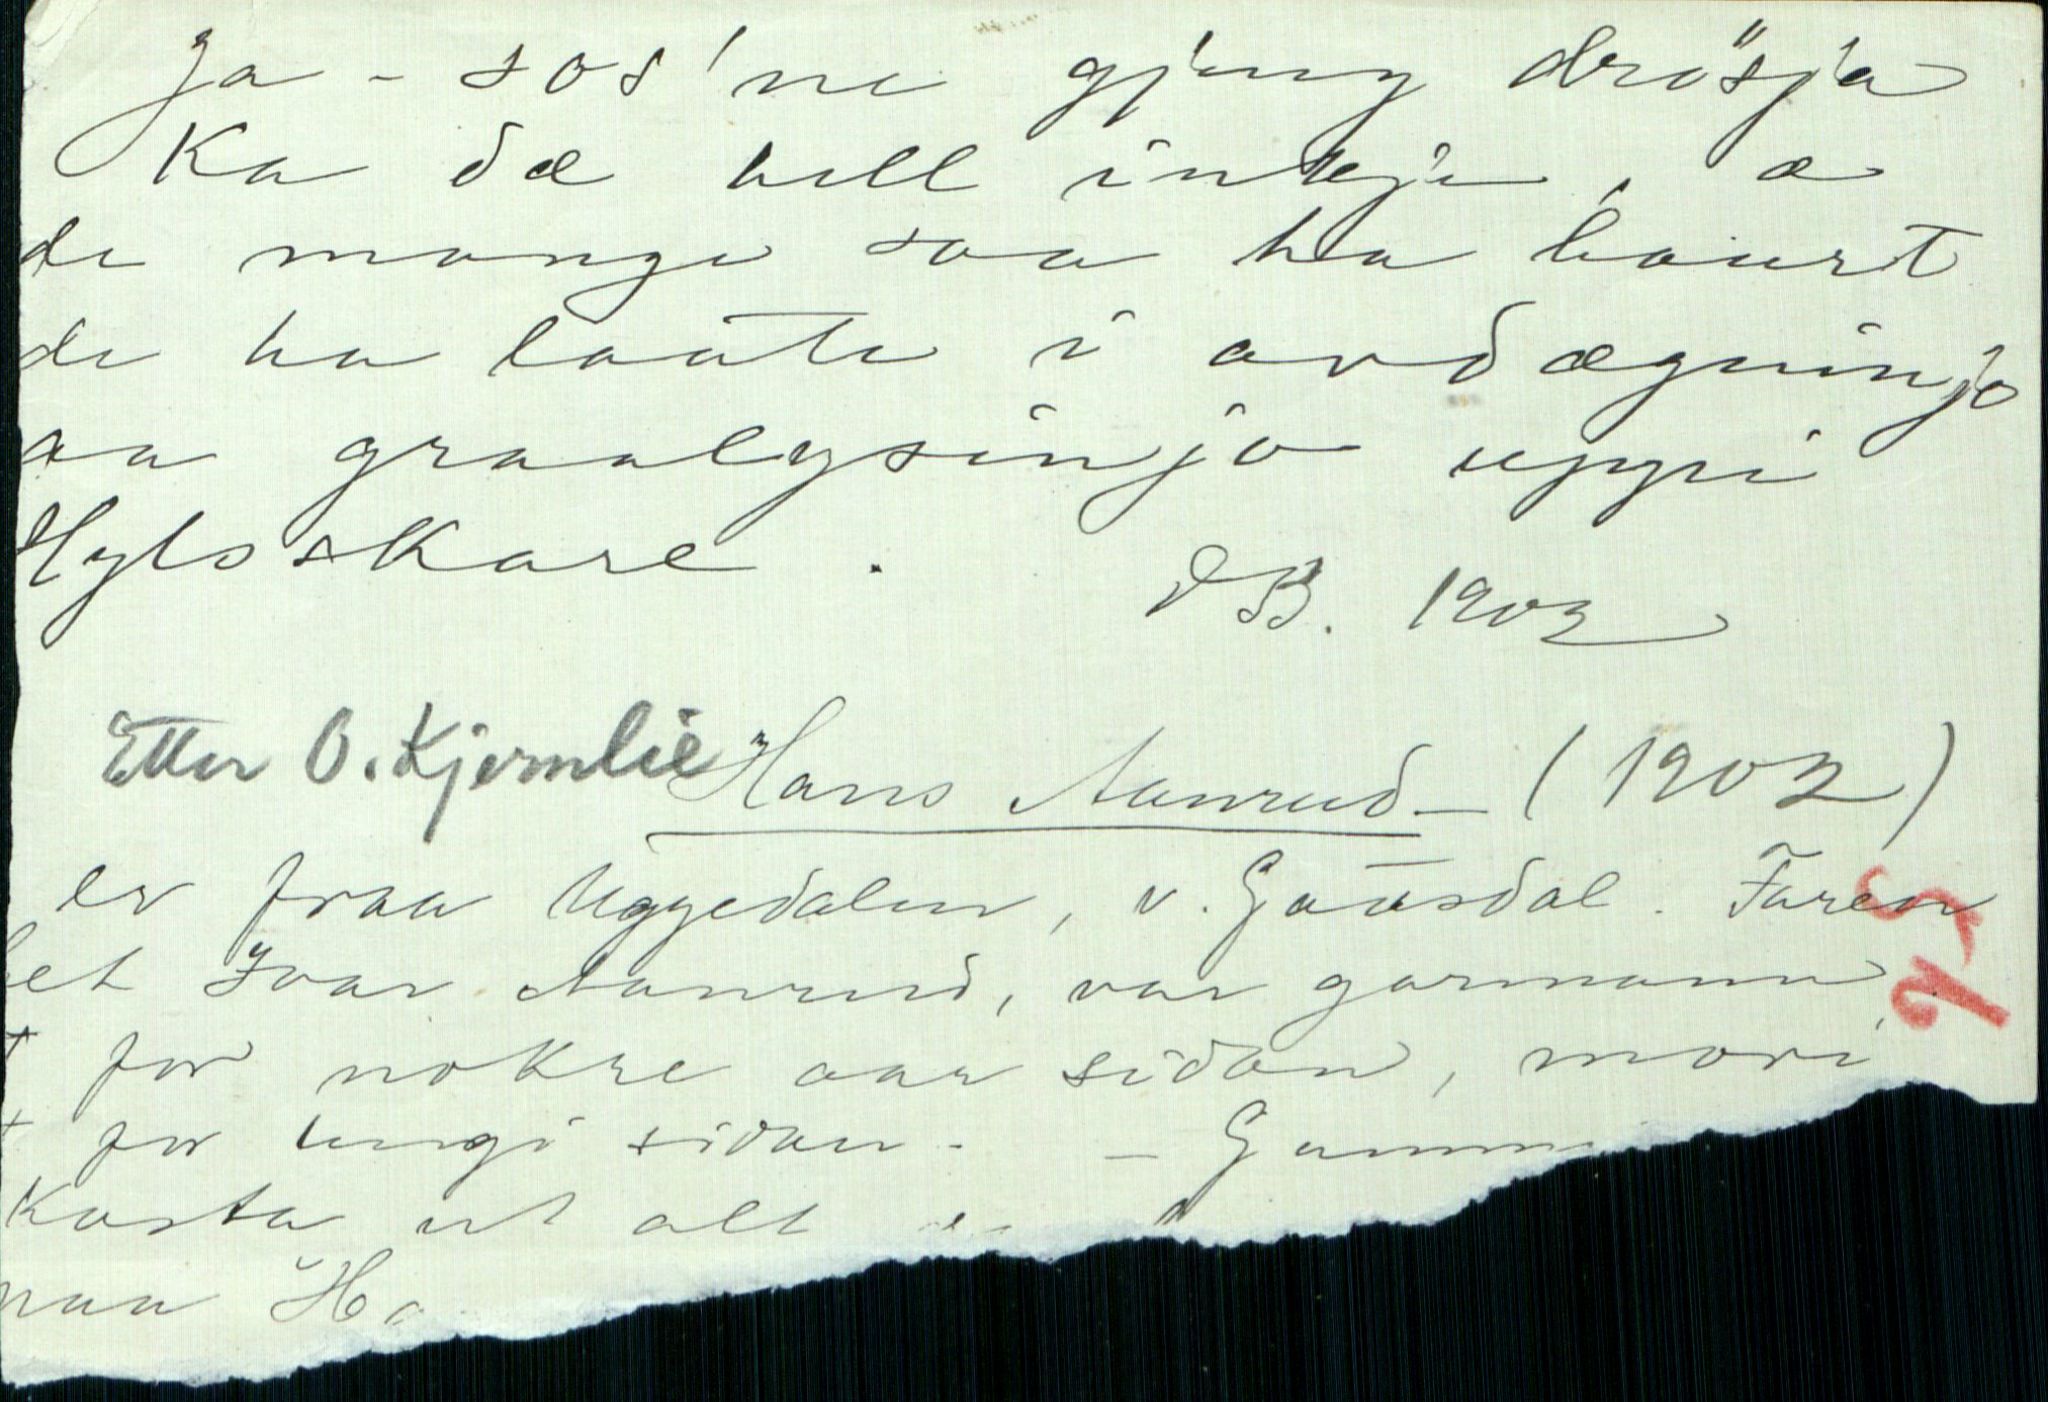 ja - sos'ne gjeng drøsja
Ka dæ vill inkje, æ
de mange saa ha høurt
de ha laate i avdægninjo
aa graalysinjo uppi
Hylsskare.
OB. 1902
Etter O. Kjernlie Hans Aanrud - (1902)
er fraa Uggedalen, v. Gausdal. Faren
het Ivar Aanrud, var garmann,
for nokre aar sidan, mori
for lengi sidan. - Gamm
Kasta ut alt
naa Ha